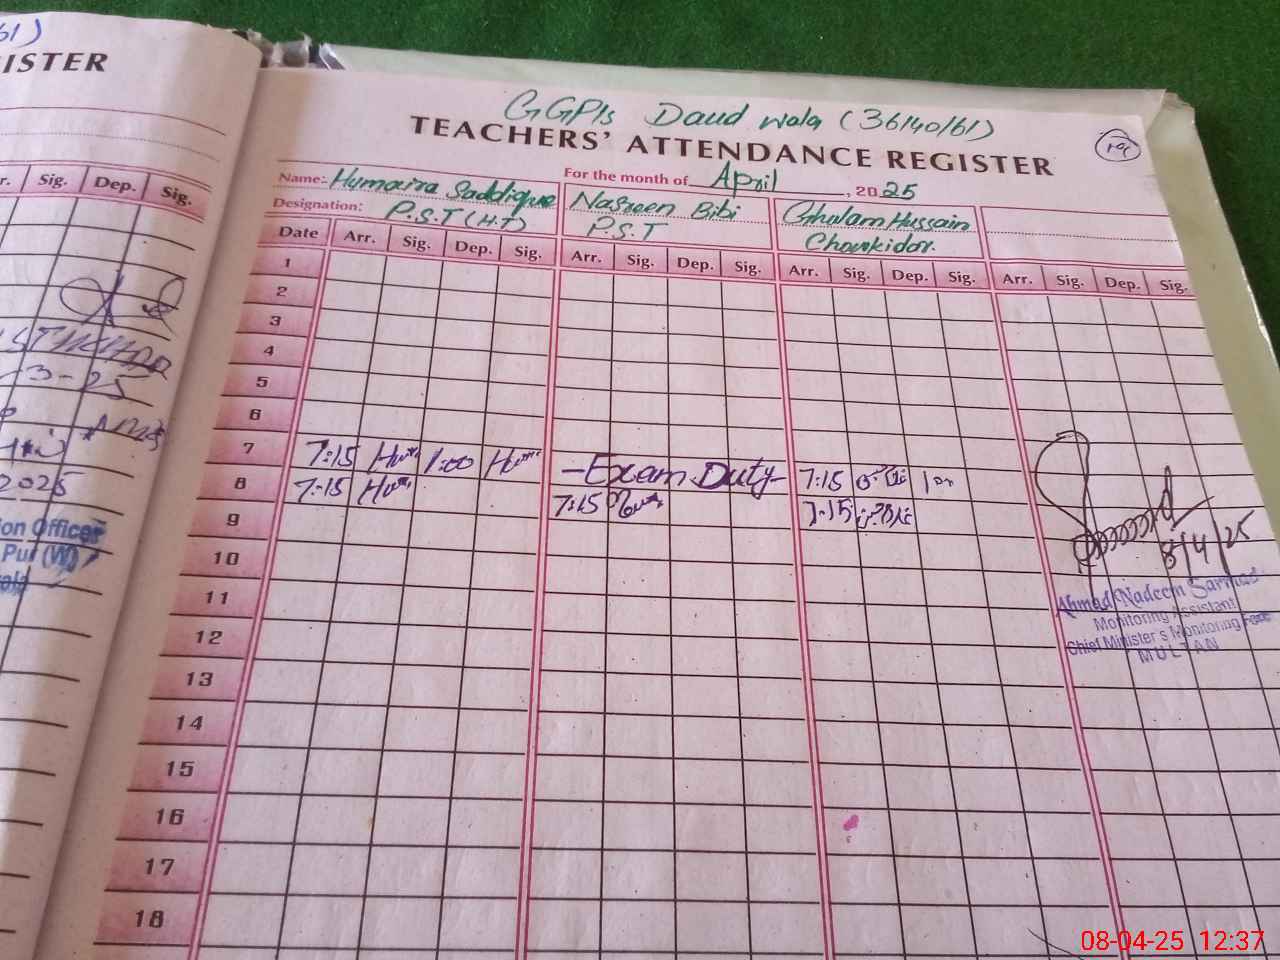 61)
ISTER
r. Sig. Dep. Sig.
3-25
2025
ion Officer
Pur (W)
GGPIs Daud wala (36140161)
TEACHERS' ATTENDANCE REGISTER
For the month of April, 2025
Name: Humaira Saddique Nasreen Bibi Ghulam Hussain
Designation: P.S.T (H.T) P.S.T Chowkidar
Date Arr. Sig. Dep. Sig. Arr. Sig. Dep. Sig. Arr. Sig. Dep. Sig. Arr. Sig. Dep. Sig.
1
2
3
4
5
6
7 7:15 Hum 1:00 Hum -Exam Duty- 7:15
8 7:15 Hum 7:15 7:15
9
10
11
12
13
14
15
16
17
18
8/4/25
Ahmad Nadeem Sarwar
Monitoring Assistant
Chief Minister's Monitoring Force
MULTAN
08-04-25 12:37